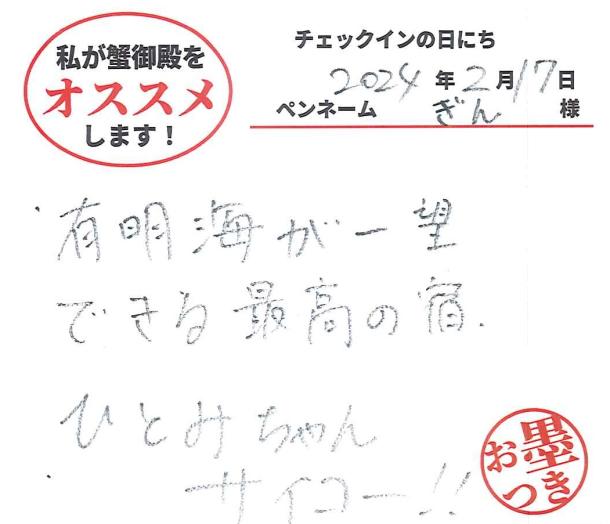 私が蟹御殿を
オススメ
します！
チェックインの日にち
2024年2月17日
ペンネーム ぎん 様
有明海が一望
できる最高の宿.
ひとみちゃん
サイコー!!
お墨
つき